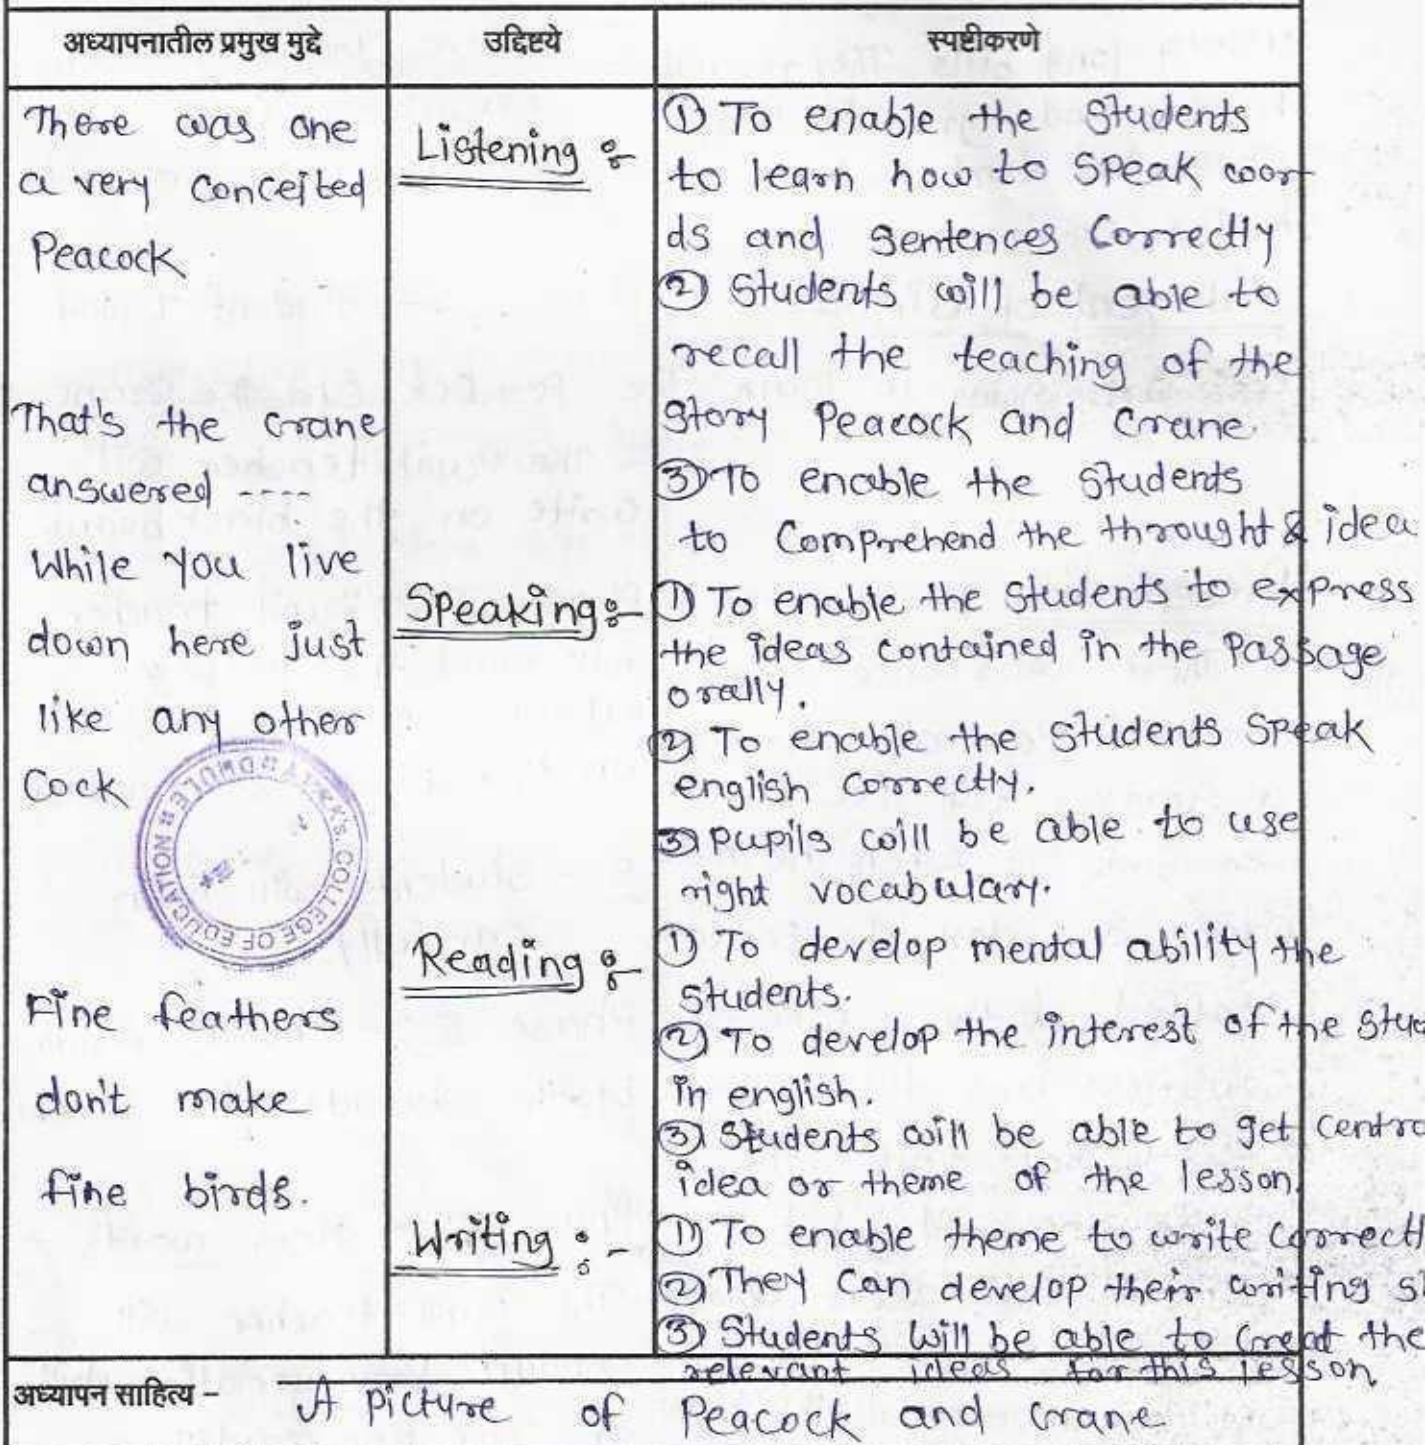 अध्यापनातील प्रमुख मुद्दे
उद्दिष्टये
स्पष्टीकरणे
There was one
a very conceited
Peacock
That's the crane
answered ----
While you live
down here just
like any other
Cock
Fine feathers
don't make
fine birds.
Listening :-
Speaking :-
Reading :-
Writing :-
① To enable the students
to learn how to speak wor
ds and sentences correctly
② Students will be able to
recall the teaching of the
story Peacock and Crane.
③ To enable the students
to comprehend the throught & idea
① To enable the students to express
the ideas contained in the passage
orally.
② To enable the students speak
english correctly.
③ pupils will be able to use
right vocabulary.
① To develop mental ability the
students.
② To develop the interest of the stu
in english.
③ Students will be able to get centra
idea or theme of the lesson.
① To enable theme to write correctl
② They can develop their writing s
③ Students will be able to creat the
relevant ideas for this lesson
COLLEGE OF EDUCATION
अध्यापन साहित्य – A picture of Peacock and crane